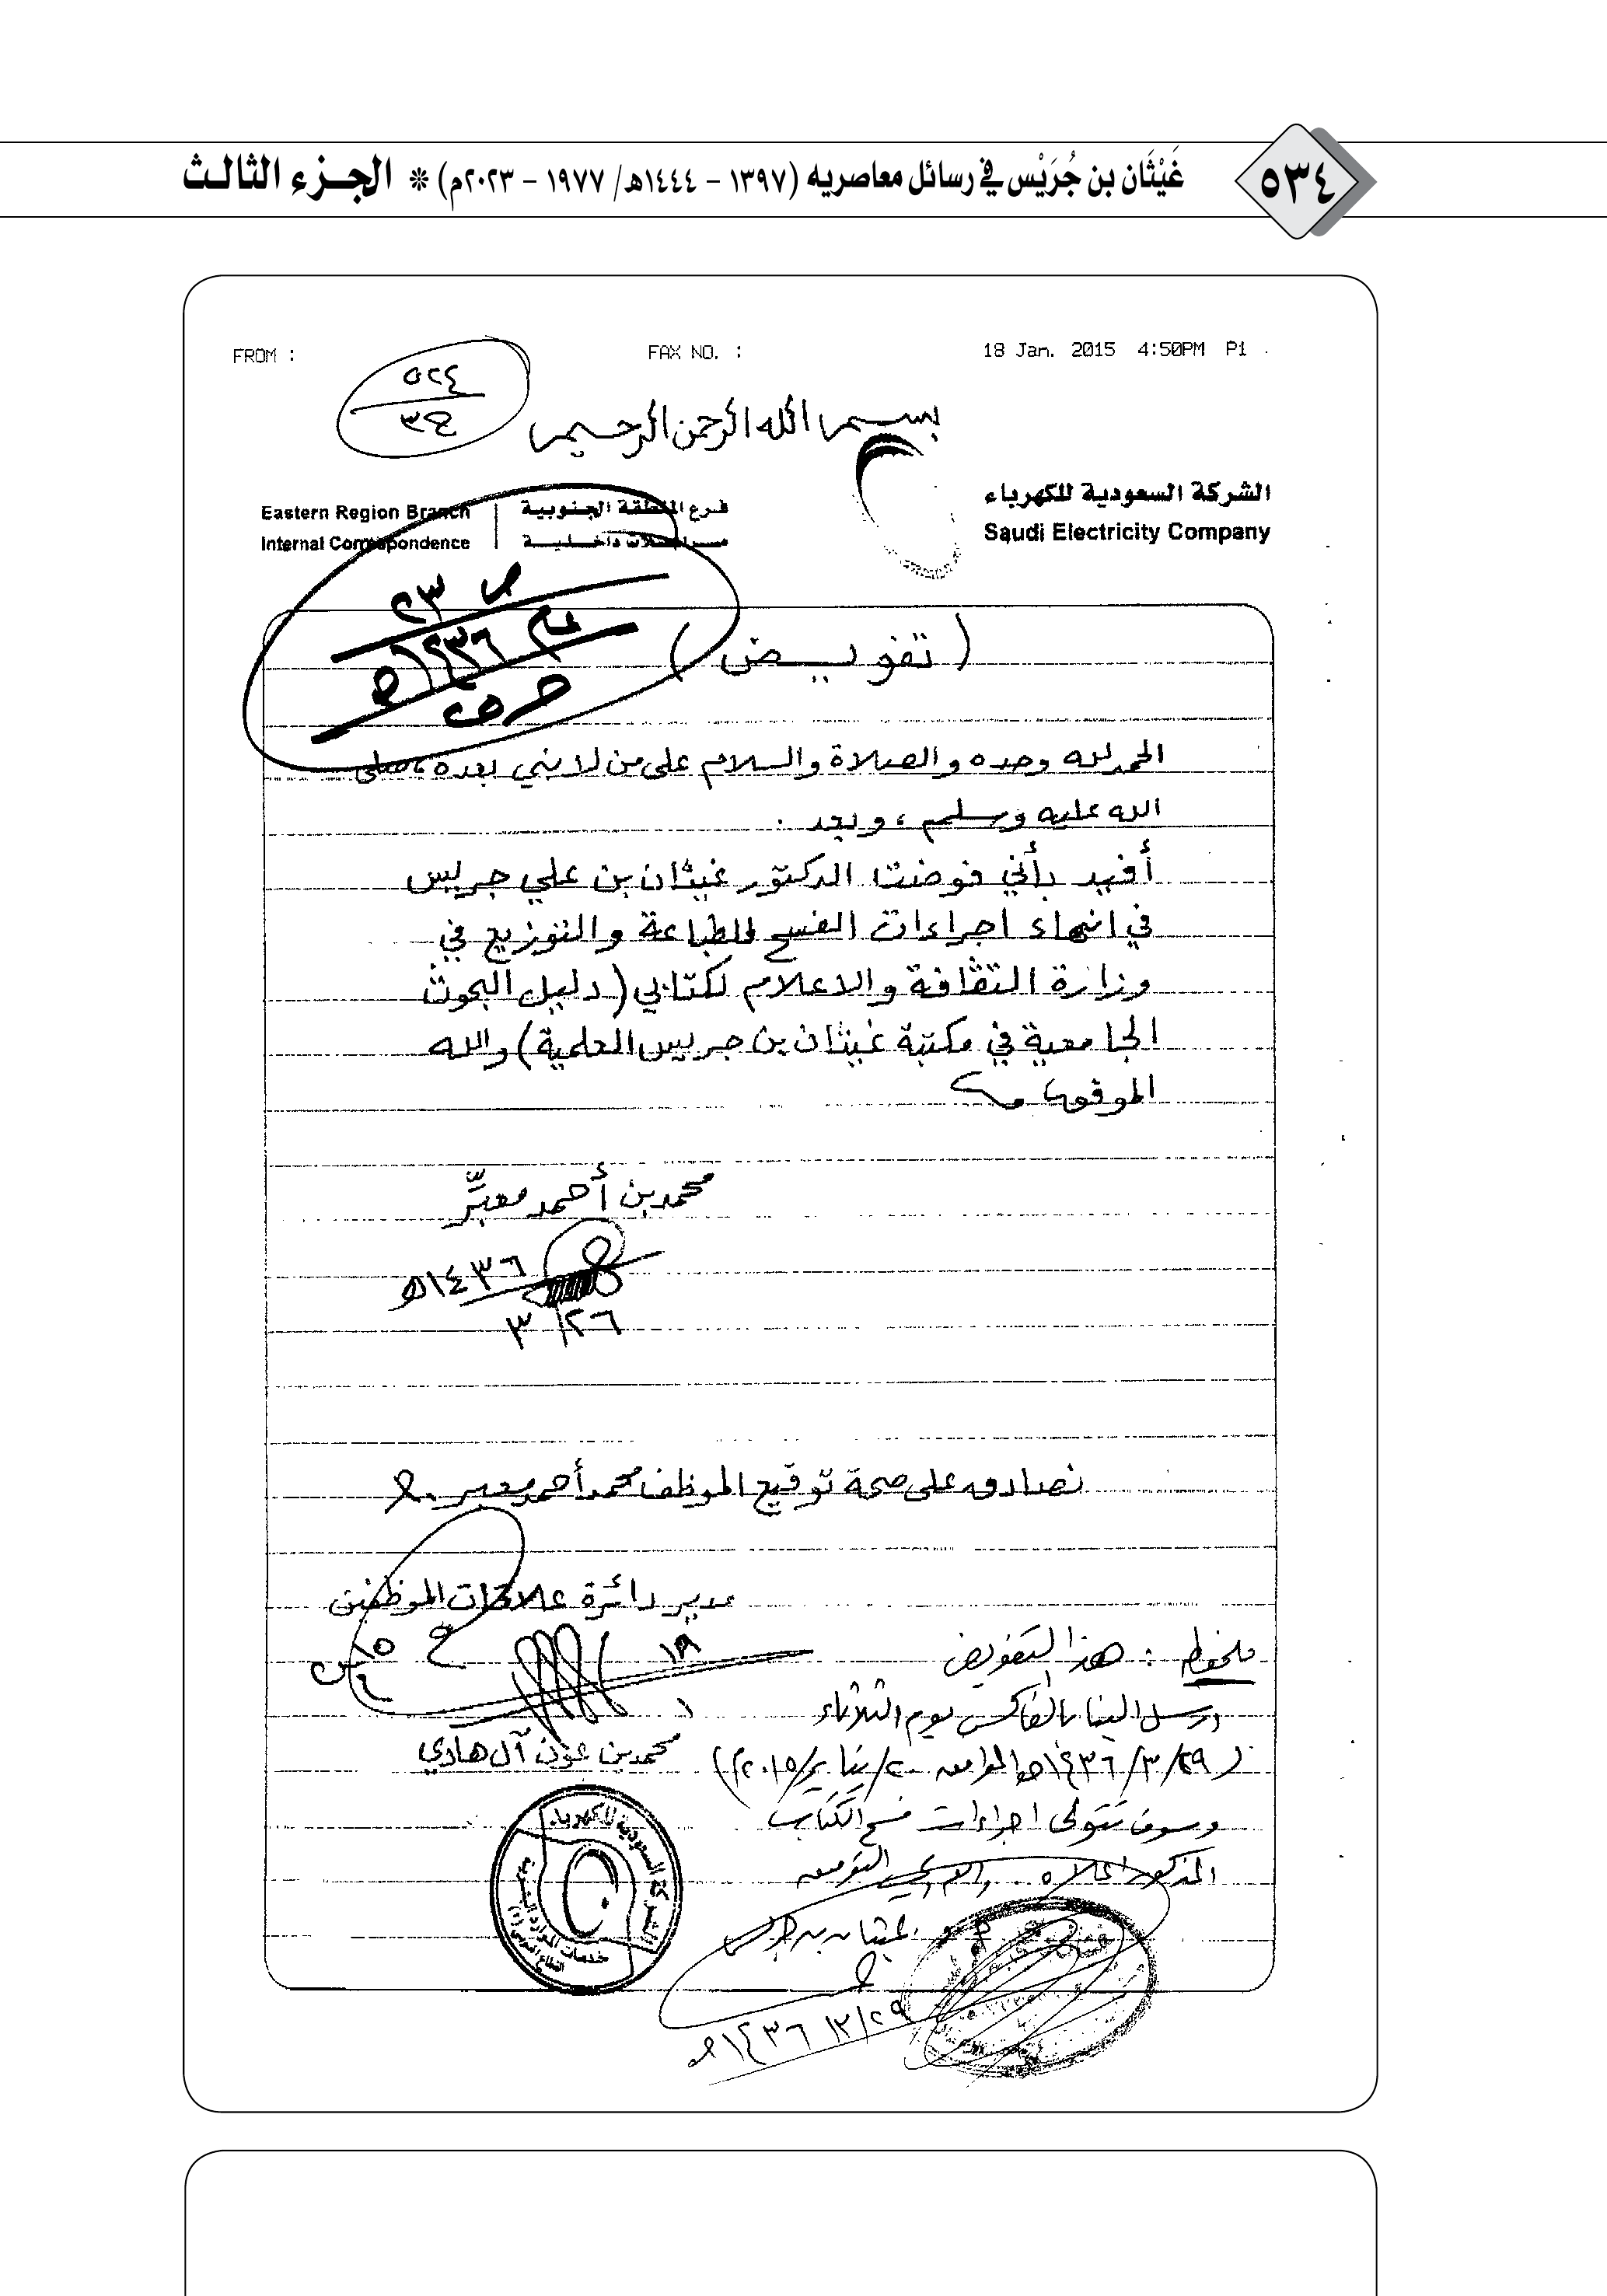 ٥٣٤
غَيْثَان بن جُرَيْس في رسائل معاصريه (١٣٩٧ - ١٤٤٤هـ/ ١٩٧٧ - ٢٠٢٣م) * الجزء الثالث
FROM :
FAX NO. :
18 Jan. 2015 4:50PM P1
٥٢٤
٣٤
بسم الله الرحمن الرحيم
الشركة السعودية للكهرباء
Saudi Electricity Company
فرع المنطقة الجنوبية
مراسلات داخلية
Eastern Region Branch
Internal Correspondence
١٤٣٦هـ
(تفويض)
الحمد لله وحده والصلاة والسلام على من لا نبي بعده، صلى
الله عليه وسلم، وبعد.
أفيد بأني فوضت الدكتور غيثان بن علي جريس
في انهاء اجراءات الفسح للطباعة والتوزيع في
وزارة الثقافة والاعلام لكتابي (دليل البحوث
الجامعية في مكتبة غيثان بن جريس العلمية) والله
الموفق
محمد بن أحمد معبِّر
١٤٣٦هـ
٢٦/ ٣
نصادق على صحة توقيع الموظف محمد أحمد معبر
مدير دائرة علاقات الموظفين
محمد بن عون آل هادي
ملحوظة : هذا التفويض
ارسل الينا بالفاكس يوم الثلاثاء
(٢٩/ ٣/ ١٤٣٦هـ الموافق ٢٠/يناير/٢٠١٥م)
وسوف نتولى اجراءات فسح الكتاب
المذكور اعلاه
غيثان بن جريس
١٤٣٦هـ
الشركة السعودية للكهرباء
خدمات الموارد البشرية